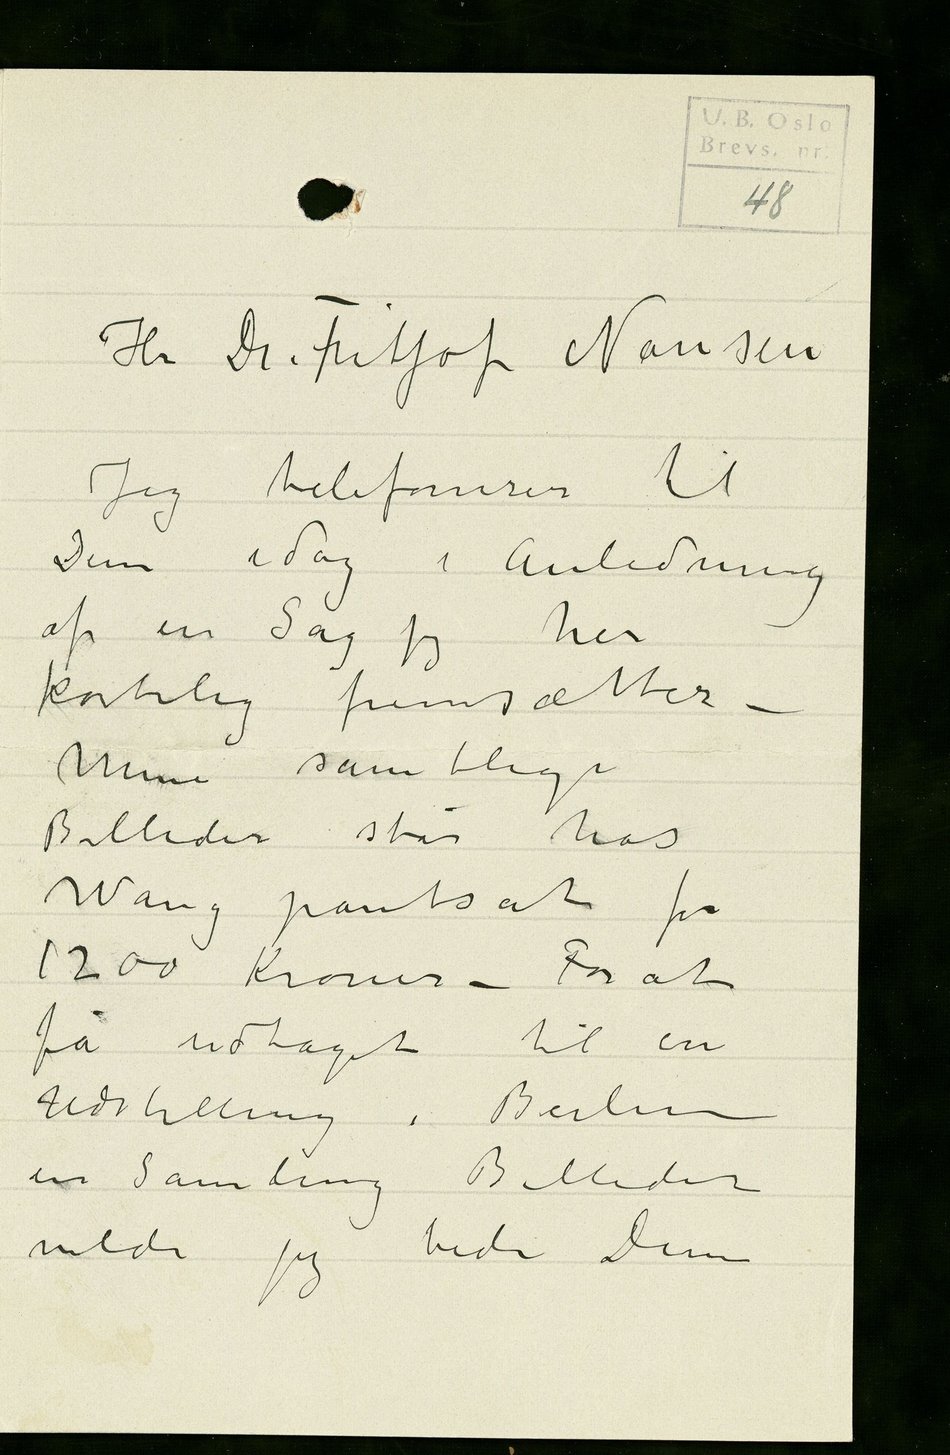 U.B. Oslo
Brevs. nr.
48
Hr Dr. Fritjof Nansen
Jeg telefonerer til
Dem idag i Anledning
af en Sag jeg her
kortelig fremsætter –
Mine samtlige
Billeder står hos
Wang pantsat for
1200 Kroner – For at
få udtaget til en
Udstilling i Berlin
en Samling Billeder
vilde jeg bede Dem